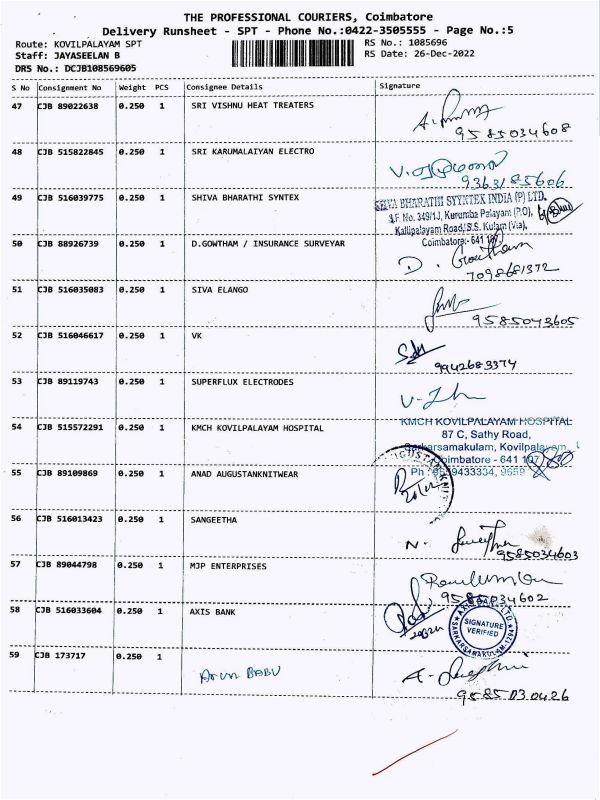 THE PROFESSIONAL COURIERS, Coimbatore
Delivery Runsheet - SPT - Phone No.:0422-3505555 - Page No.:5
Route: KOVILPALAYAM SPT
RS No.: 1085696
Staff: JAYASEELAN B
RS Date: 26-Dec-2022
DRS No.: DCJB108569605
S No Consignment No Weight PCS Consignee Details Signature
47 CJB 89022638 0.250 1 SRI VISHNU HEAT TREATERS
9585034608
48 CJB 515822845 0.250 1 SRI KARUMALAIYAN ELECTRO
9363185606
49 CJB 516039775 0.250 1 SHIVA BHARATHI SYNTEX
SHIVA BHARATHI SYYNTEX INDIA (P) LTD.
S.F. No. 349/1J, Kurumba Palayam (P.O),
Kallipalayam Road, S.S. Kulam (Via),
Coimbatore - 641 107
50 CJB 88926739 0.250 1 D.GOWTHAM / INSURANCE SURVEYAR
D. Gowtham
7098681372
51 CJB 516035083 0.250 1 SIVA ELANGO
9585043605
52 CJB 516046617 0.250 1 VK
9942683374
53 CJB 89119743 0.250 1 SUPERFLUX ELECTRODES
54 CJB 515572291 0.250 1 KMCH KOVILPALAYAM HOSPITAL
KMCH KOVILPALAYAM HOSPITAL
87 C, Sathy Road,
Sarkarsamakulam, Kovilpalayam,
Coimbatore - 641 107
55 CJB 89109869 0.250 1 ANAD AUGUSTANKNITWEAR
56 CJB 516013423 0.250 1 SANGEETHA
9585034603
57 CJB 89044798 0.250 1 MJP ENTERPRISES
9585034602
58 CJB 516033604 0.250 1 AXIS BANK
SIGNATURE
VERIFIED
59 CJB 173717 0.250 1 Arun BABU
9585030426